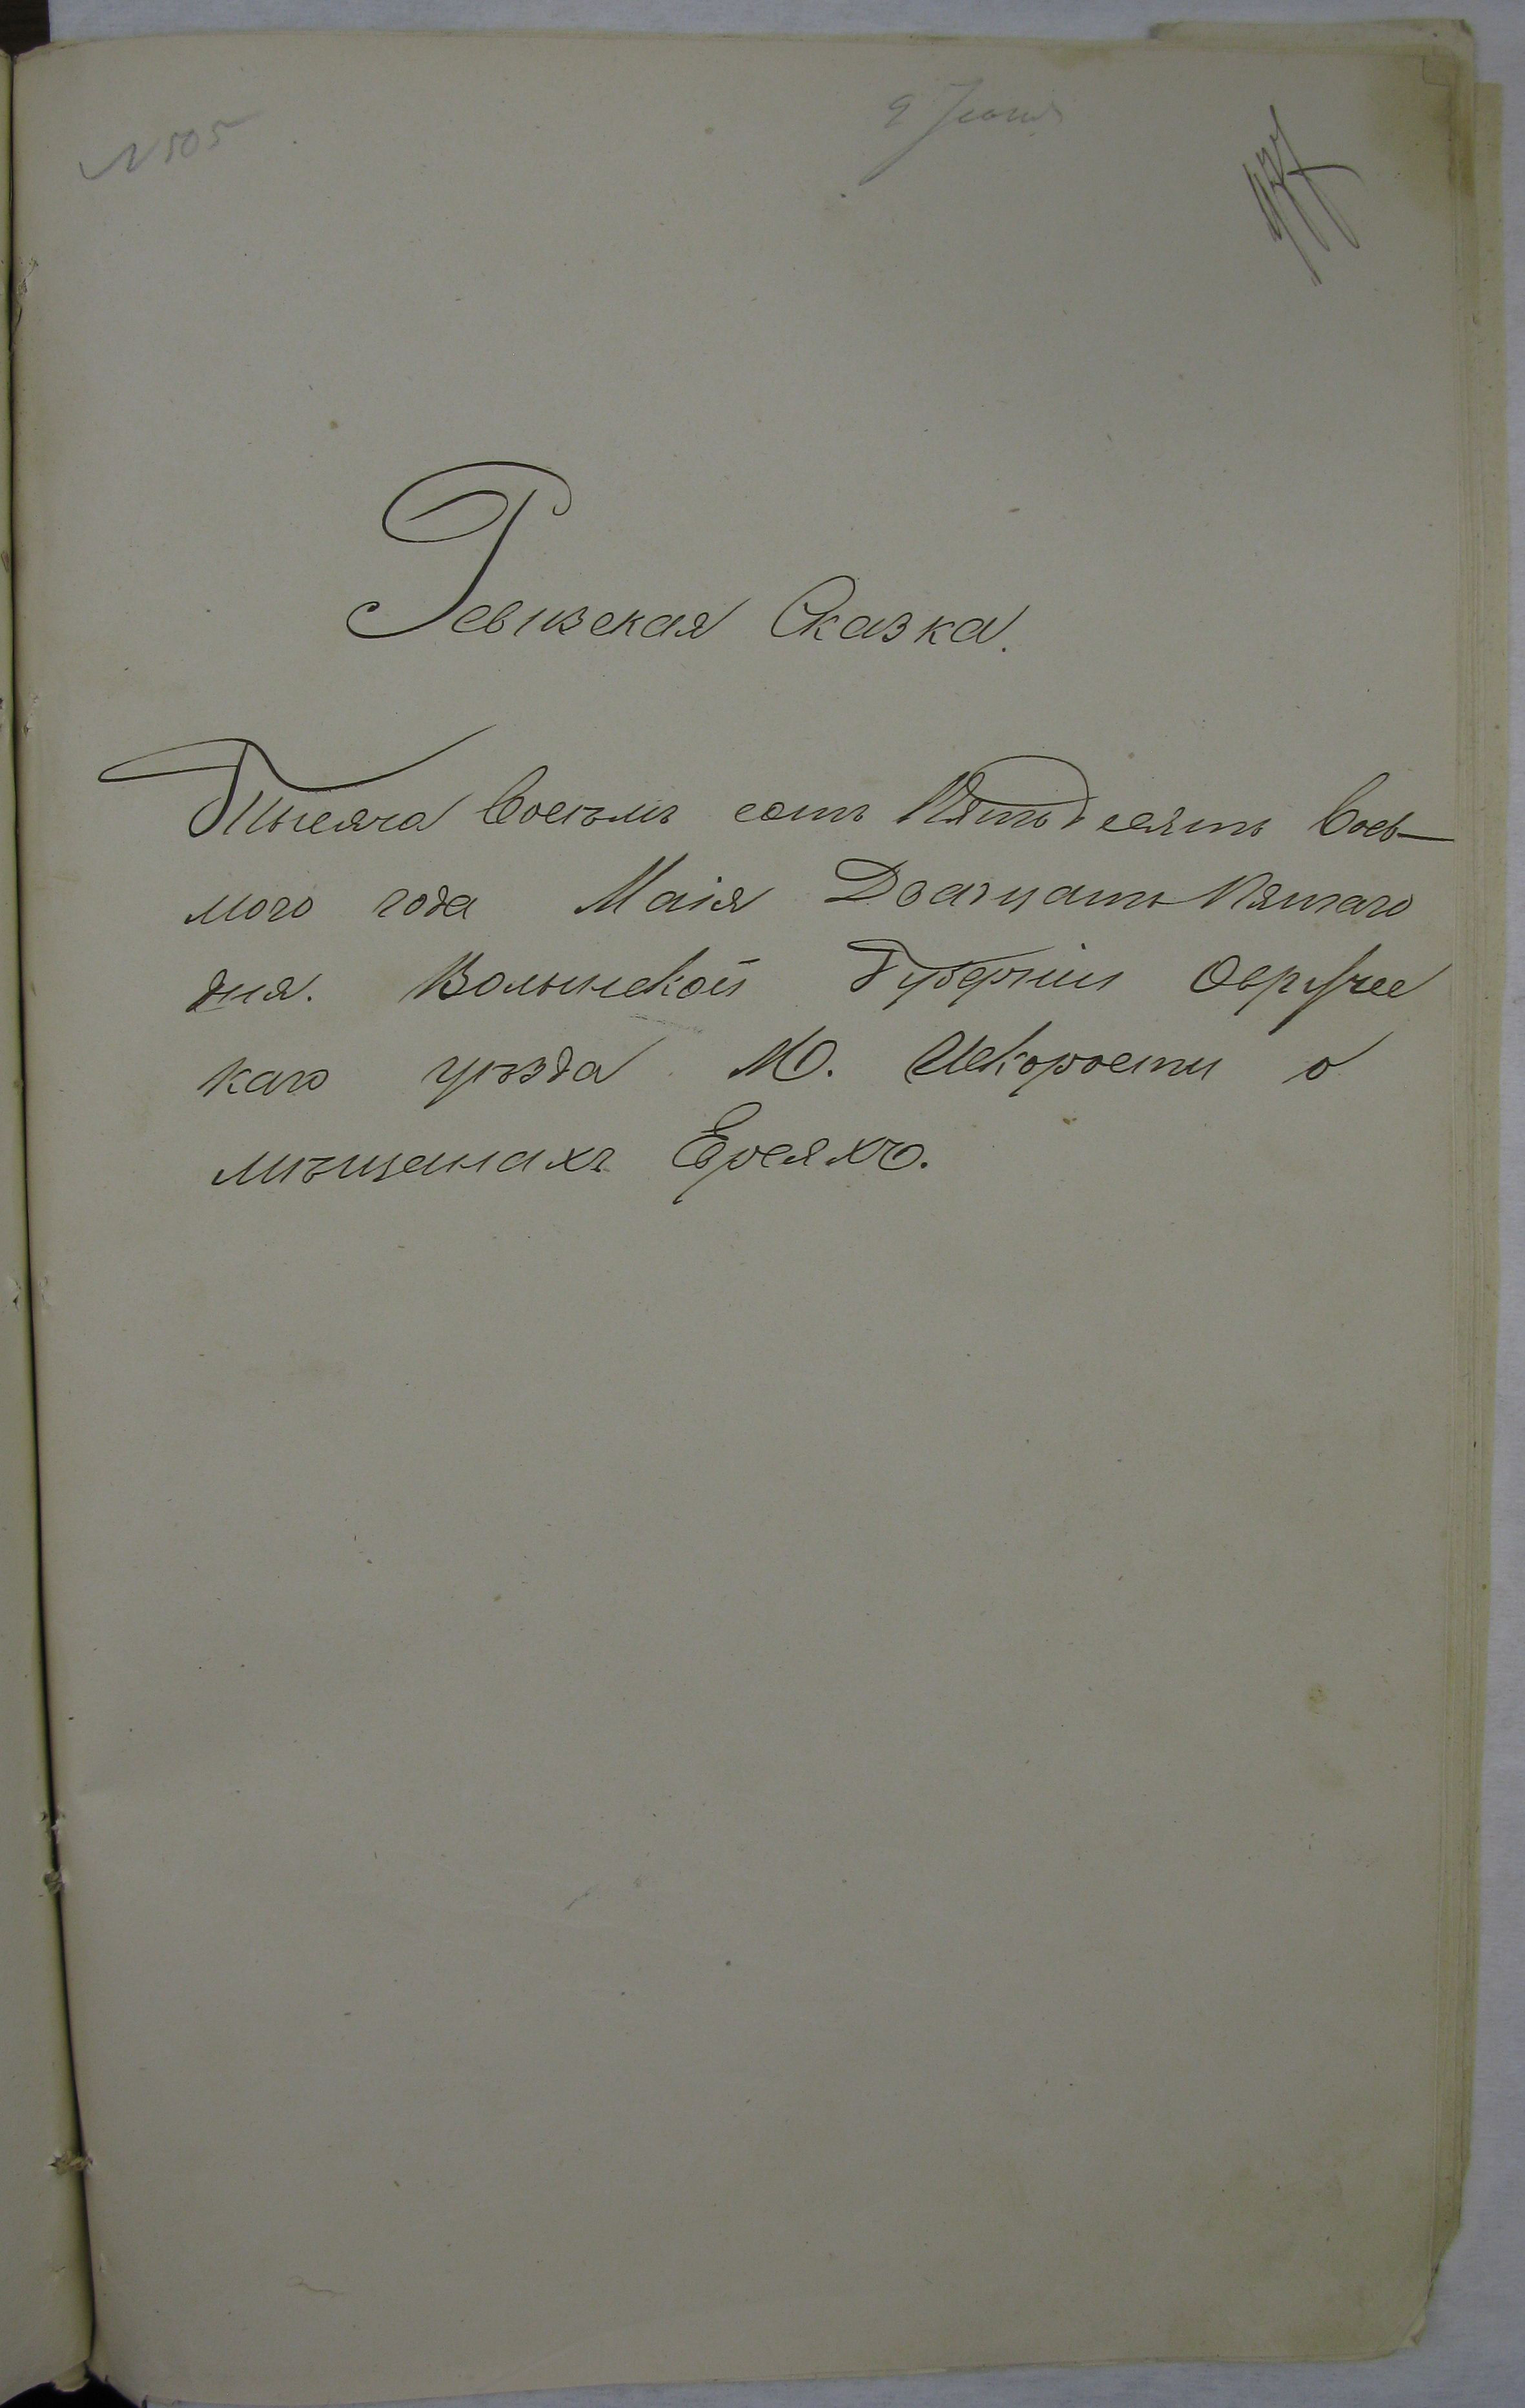 N 505
9 Июня
Ревизская Сказка.
Тысяча Восемь сотъ Пятьдесятъ Вось-
мого года Маія Двадцать Пятаго
дня. Волынской Губерніи Овручс
каго уѣзда М. Искорости о
мѣщанахъ Евреяхъ.